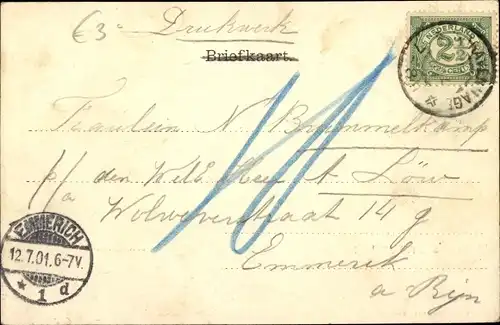 €3=
Drukwerk
Briefkaart.
NEDERLAND
2½
CENT
Fraulein N Brummelkamp
p/a den WelE. Heer A. Löw
Wolwerstraat 14 g
Emmerik
a Rijn
EMMERICH
12.7.01.6-7V.
* 1 d